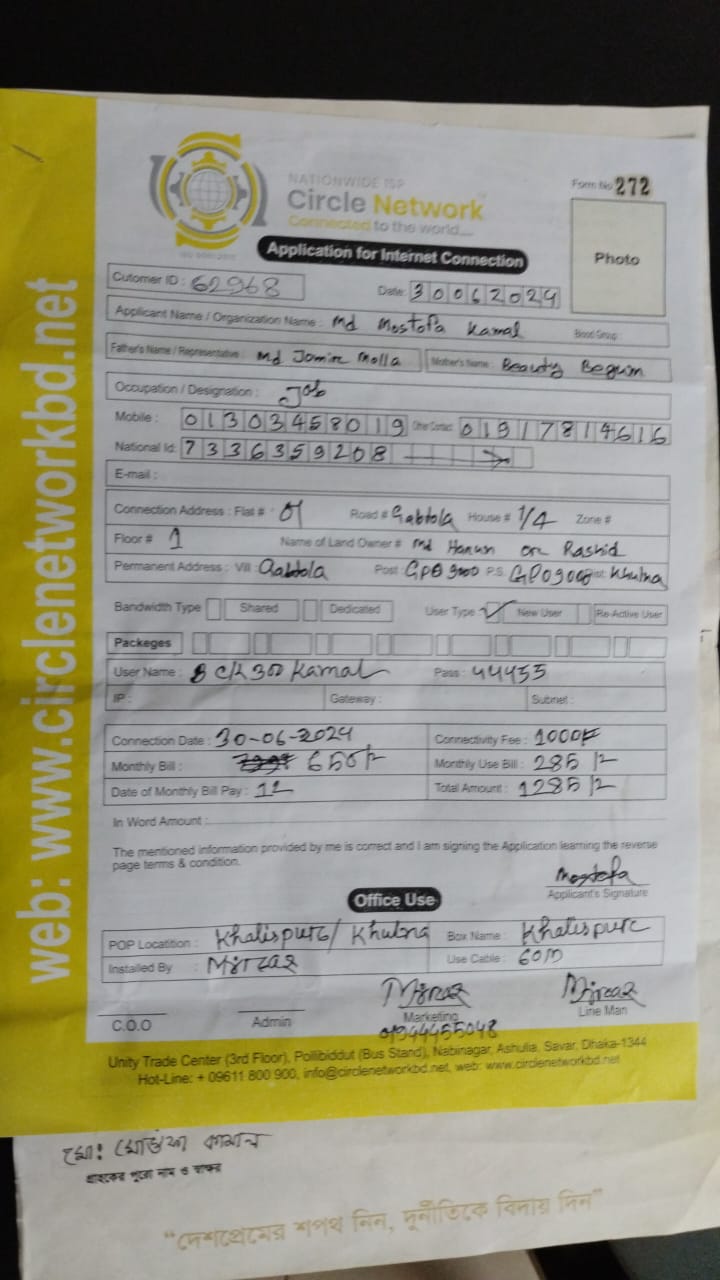 web: www.circlenetworkbd.net
NATIONWIDE ISP
Circle Network
Connected to the world....
ISO 9001:2015
Form No 272
Application for Internet Connection
Photo
Cutomer ID : 62968 Date: 30062024
Applicant Name / Organization Name : Md Mostofa Kamal Blood Group :
Father's Name / Representative : Md Jomir Molla Mother's Name : Beauty Begum
Occupation / Designation : Job
Mobile : 01303458019 Other Contact: 01917814616
National Id: 7336359208
E-mail :
Connection Address : Flat # 01 Road # Gabtola House # 1/4 Zone #
Floor # 1 Name of Land Owner # Md Harun or Rashid
Permanent Address : Vill : Gabtola Post : GPO 9000 P.S. GPO 9000 Khulna
Bandwidth Type Shared Dedicated User Type New User Re-Active User
Packeges
User Name : Kamal Pass : 44455
IP : Gateway : Subnet :
Connection Date : 30-06-2024 Connectivity Fee : 1000/-
Monthly Bill : 650/- Monthly Use Bill : 285/-
Date of Monthly Bill Pay : Total Amount : 1285/-
In Word Amount :
The mentioned information provided by me is correct and I am signing the Application learning the reverse
page terms & condition.
Mostofa
Applicant's Signature
Office Use
POP Locatition : Khalispur / Khulna Box Name : Khalispur
Installed By : Mirzaz Use Cable : 60m
C.O.O Admin Marketing Line Man
01944455048
Unity Trade Center (3rd Floor), Pollibiddut (Bus Stand), Nabinagar, Ashulia, Savar, Dhaka-1344
Hot-Line: + 09611 800 900, info@circlenetworkbd.net, web: www.circlenetworkbd.net
মো: মোস্তফা কামাল
গ্রাহকের পুরো নাম ও স্বাক্ষর
“দেশপ্রেমের শপথ নিন, দুর্নীতিকে বিদায় দিন”